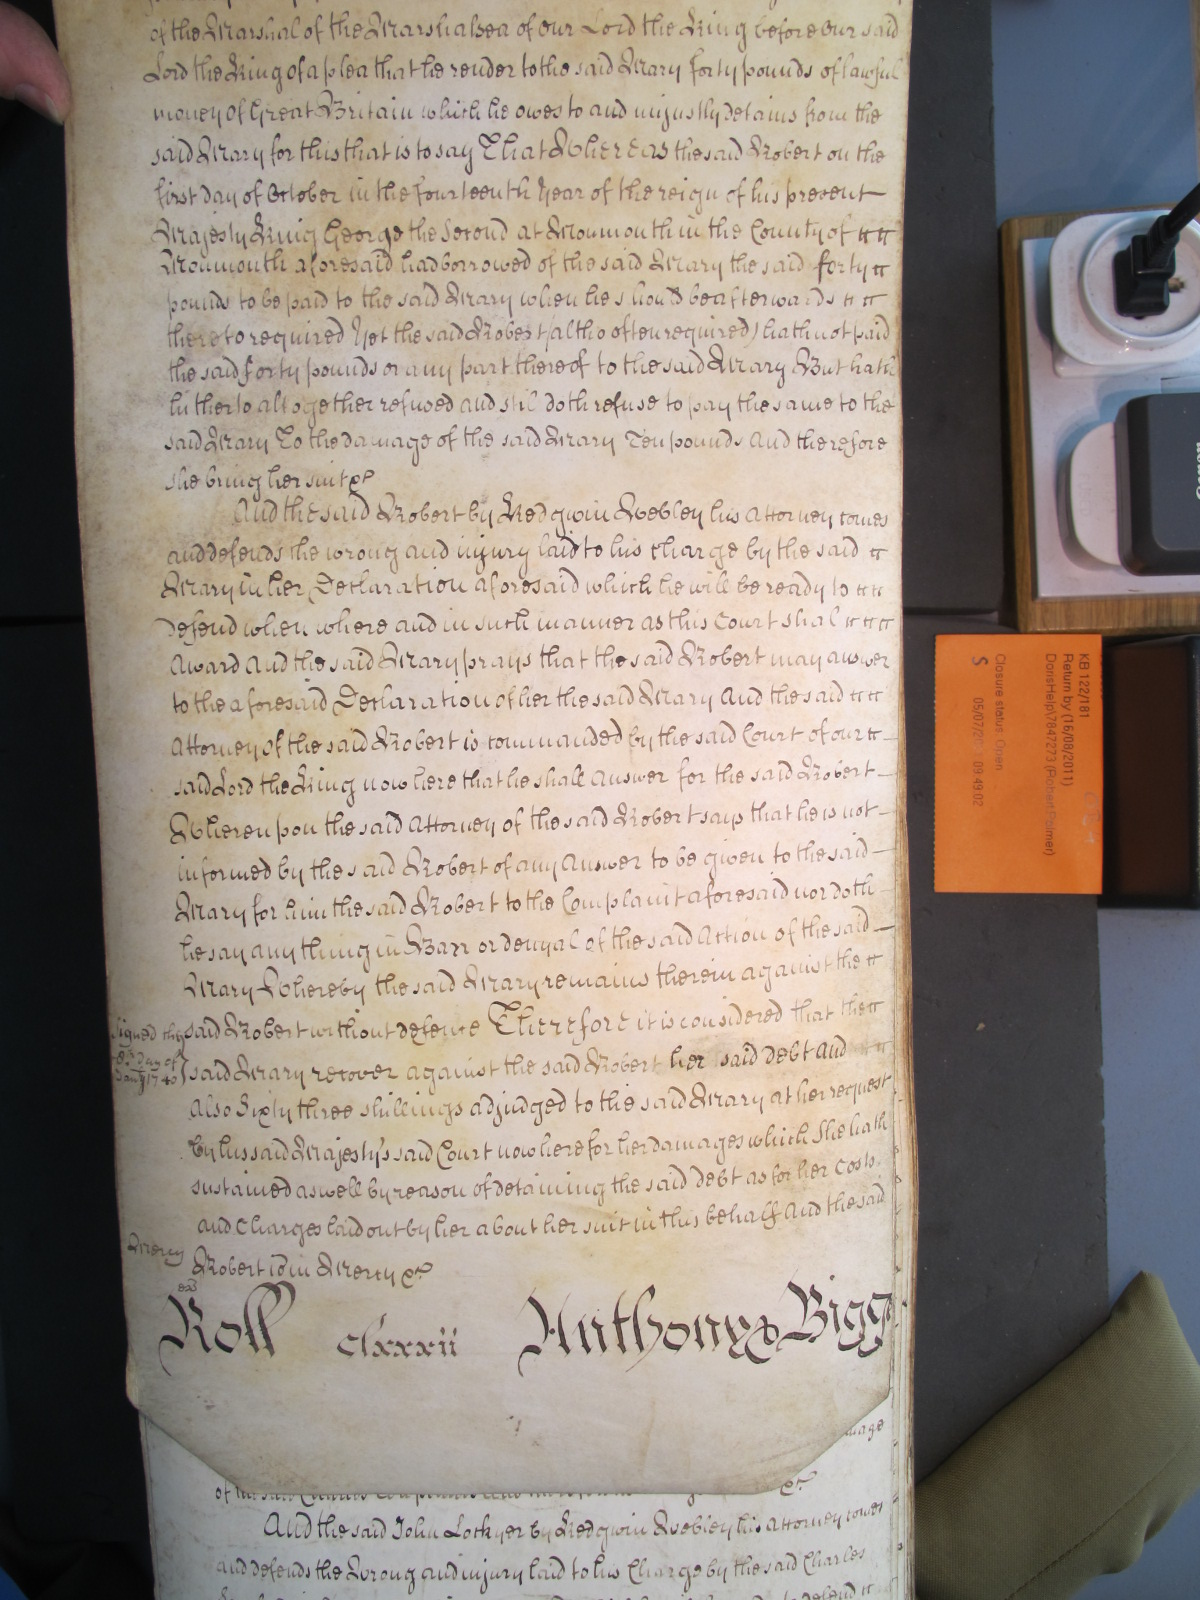 of the Marshal of the Marshalsea of our Lord the King before our said
Lord the King of a plea that he render to the said Mary forty pounds of lawful
money of Great Britain which he owes to and unjustly detains from the
said Mary for this that is to say That Whereas the said Robert on the
first day of October in the fourteenth Year of the reign of his present
Majesty King George the Second at Monmouth in the County of
Monmouth aforesaid had borrowed of the said Mary the said forty
pounds to be paid to the said Mary when he should be afterwards
thereto required Yet the said Robert (altho often required) hath not paid
the said forty pounds or any part thereof to the said Mary But hath
hitherto altogether refused and stil doth refuse to pay the same to the
said Mary To the damage of the said Mary Ten pounds And therefore
she bring her suit &c
And the said Robert by Redgwin Webley his Attorney comes
and defends the wrong and injury laid to his charge by the said
Mary in her Declaration aforesaid which he will be ready to
defend when where and in such manner as this Court shal
Award And the said Mary prays that the said Robert may answer
to the aforesaid Declaration of her the said Mary And the said
Attorney of the said Robert is commanded by the said Court of our
said Lord the King now here that he shall answer for the said Robert
Whereupon the said Attorney of the said Robert says that he is not
informed by the said Robert of any Answer to be given to the said
Mary for him the said Robert to the Complaint aforesaid nor doth
he say any thing in Barr or denyal of the said Action of the said
Mary Whereby the said Mary remains therein against the
said Robert without defence Therefore it is considered that the
Signed the
Day of
1740
said Mary recover against the said Robert her said debt And
Also Sixty three shillings adjudged to the said Mary at her request
by his said Majesty's said Court now here for her damages which She hath
sustained aswell by reason of detaining the said debt as for her Costs
and Charges laid out by her about her suit in this behalf And the said
Mercy
Robert is in Mercy &c
Roll clxxxii Anthony & Bigg
And the said John Lockyer by Redgwin Webley his Attorney comes
and defends the Wrong and injury laid to his Charge by the said Charles
to defend it
KB 122/181
Return by (16/08/2011)
DorisHelp\7847273 (Robert Palmer)
Closure status: Open
S 09:49:02
Canon